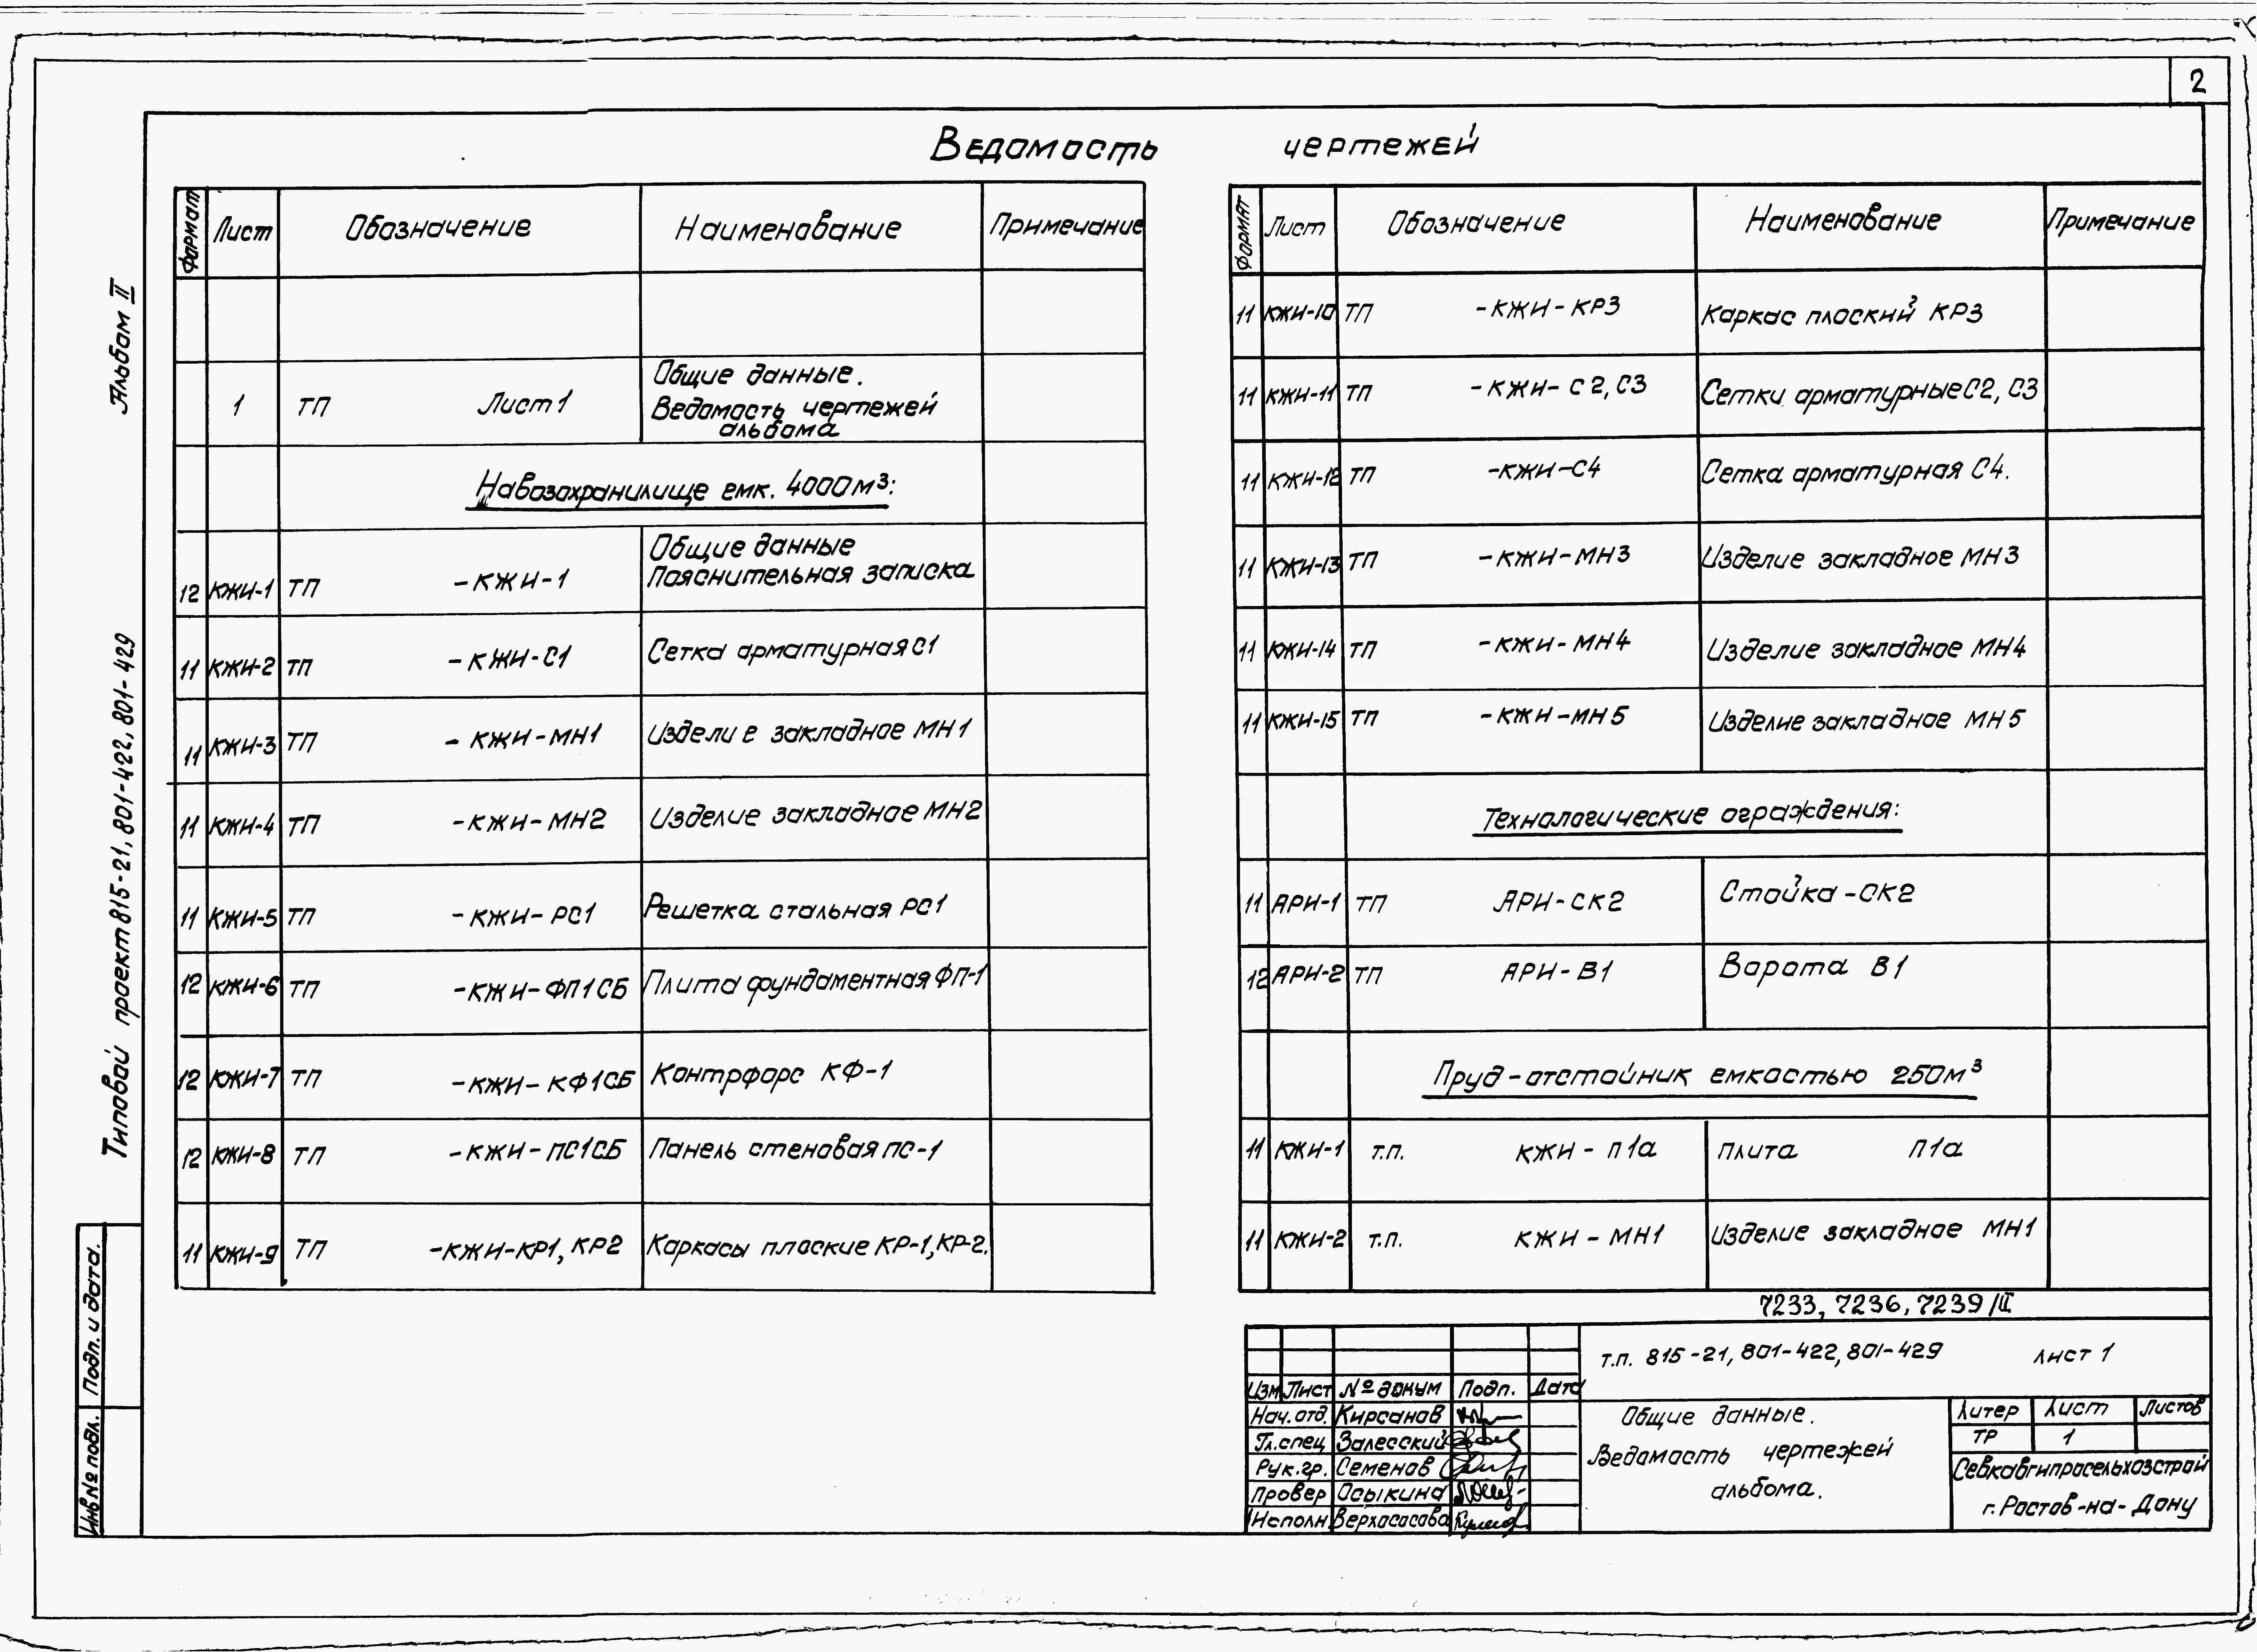 2
Ведомость чертежей
Альбом II
Типовой проект 815-21, 801-422, 801-429
Подп. и дата.
Инв № подл.
Формат Лист Обозначение Наименование Примечание
1 ТП Лист 1 Общие данные.
Ведомость чертежей
альбома
Навозохранилище емк. 4000 м³:
Общие данные
12 КЖИ-1 ТП -КЖИ-1 Пояснительная записка
11 КЖИ-2 ТП -КЖИ-С1 Сетка арматурная С1
11 КЖИ-3 ТП - КЖИ-МН1 Изделие закладное МН1
11 КЖИ-4 ТП -КЖИ-МН2 Изделие закладное МН2
11 КЖИ-5 ТП -КЖИ-РС1 Решетка стальная РС1
12 КЖИ-6 ТП -КЖИ-ФП1СБ Плита фундаментная ФП-1
12 КЖИ-7 ТП -КЖИ-КФ1СБ Контрфорс КФ-1
12 КЖИ-8 ТП -КЖИ-ПС1СБ Панель стеновая ПС-1
11 КЖИ-9 ТП -КЖИ-КР1, КР2 Каркасы плоские КР-1, КР-2.
Формат Лист Обозначение Наименование Примечание
11 КЖИ-10 ТП -КЖИ-КР3 Каркас плоский КР3
11 КЖИ-11 ТП -КЖИ-С2, С3 Сетки арматурные С2, С3
11 КЖИ-12 ТП -КЖИ-С4 Сетка арматурная С4.
11 КЖИ-13 ТП -КЖИ-МН3 Изделие закладное МН3
11 КЖИ-14 ТП -КЖИ-МН4 Изделие закладное МН4
11 КЖИ-15 ТП -КЖИ-МН5 Изделие закладное МН5
Технологические ограждения:
11 АРИ-1 ТП АРИ-СК2 Стойка-СК2
12 АРИ-2 ТП АРИ-В1 Ворота В1
Пруд-отстойник емкостью 250м³
11 КЖИ-1 т.п. КЖИ-П1а Плита П1а
11 КЖИ-2 т.п. КЖИ-МН1 Изделие закладное МН1
7233, 7236, 7239/II
т.п. 815-21, 801-422, 801-429 лист 1
Изм Лист № докум Подп. Дата
Нач.отд. Кирсанов
Гл.спец Залесский
Рук.гр. Семенов
Провер Осыкина
Исполн. Верхососова
Общие данные.
Ведомость чертежей
альбома.
Литер Лист Листов
ТР 1
Севкавгипросельхозстрой
г. Ростов-на-Дону